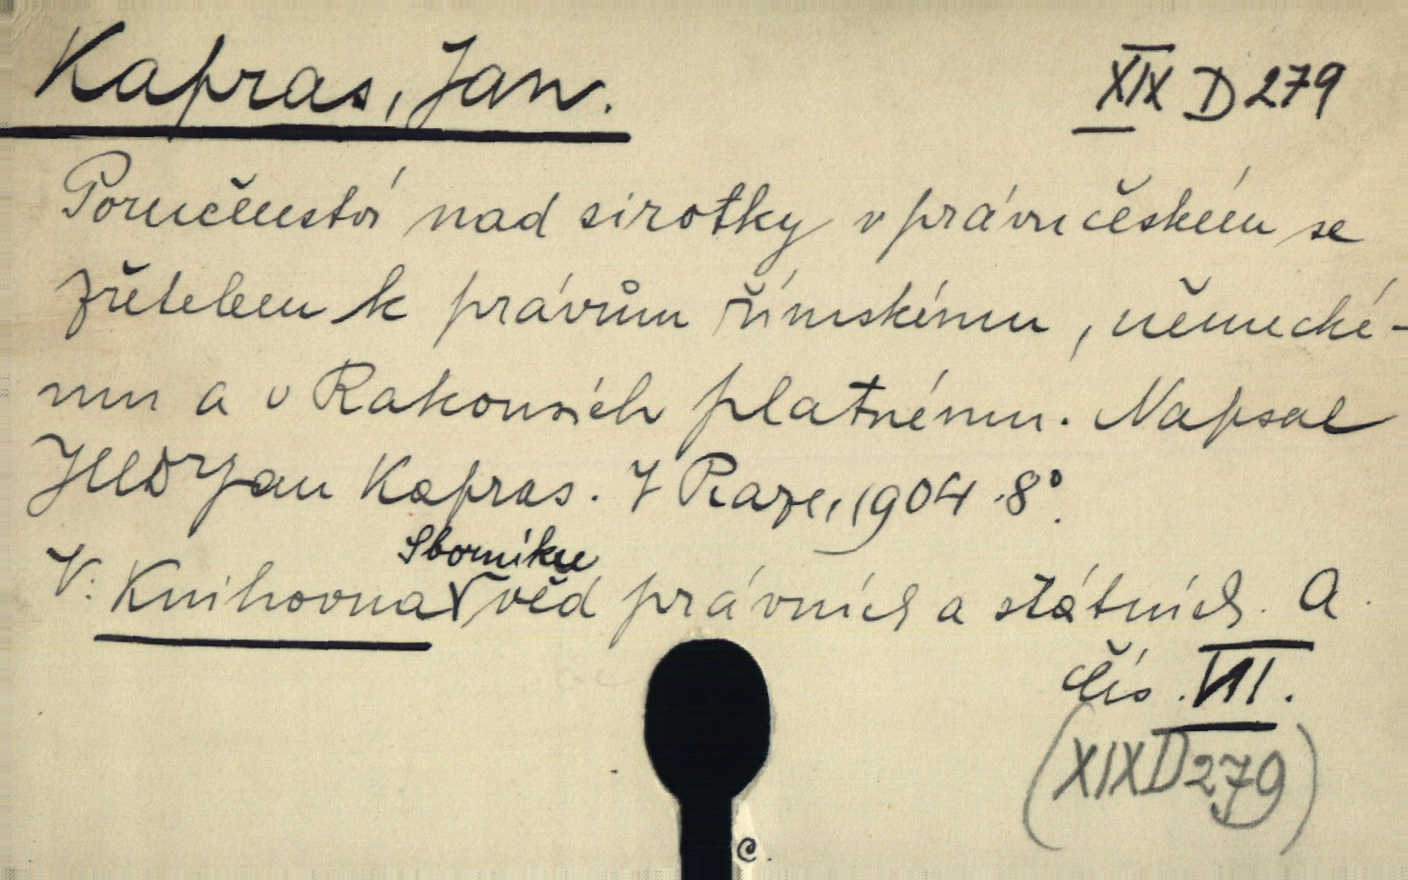 Kapras, Jan.
XIX D 279
Poručenství nad sirotky v právu českém se
zřetelem k právům římskému, německé-
mu a v Rakousích platnému. Napsal
JUDr Jan Kapras. V Praze, 1904. 8°.
Sborníku
V: Knihovna věd právních a státních. A.
čís. VII.
(XIX D 279)
C.